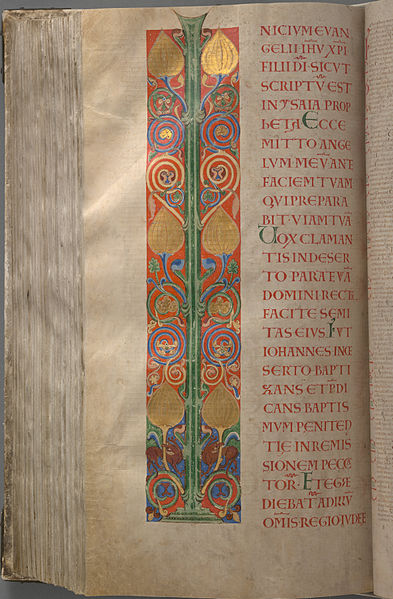 NICIUM EVAN
GELII·IHU XPI
FILII DI·SICUT
SCRIPTU EST
IN YSAIA PROP
HETA ECCE
MITTO ANGE
LUM MEU ANTE
FACIEM TUAM
QUI PREPARA
BIT UIAM TUA
UOX CLAMAN
TIS IN DESER
TO PARATE UIA
DOMINI RECTAS
FACITE SEMI
TAS EIUS. FUIT
IOHANNES IN DE
SERTO BAPTI
ZANS ET PDI
CANS BAPTIS
MUM PENITEN
TIE IN REMIS
SIONEM PECCA
TOR· ET EGRE
DIEBAT AD ILLU
OMIS·REGIO IUDEE